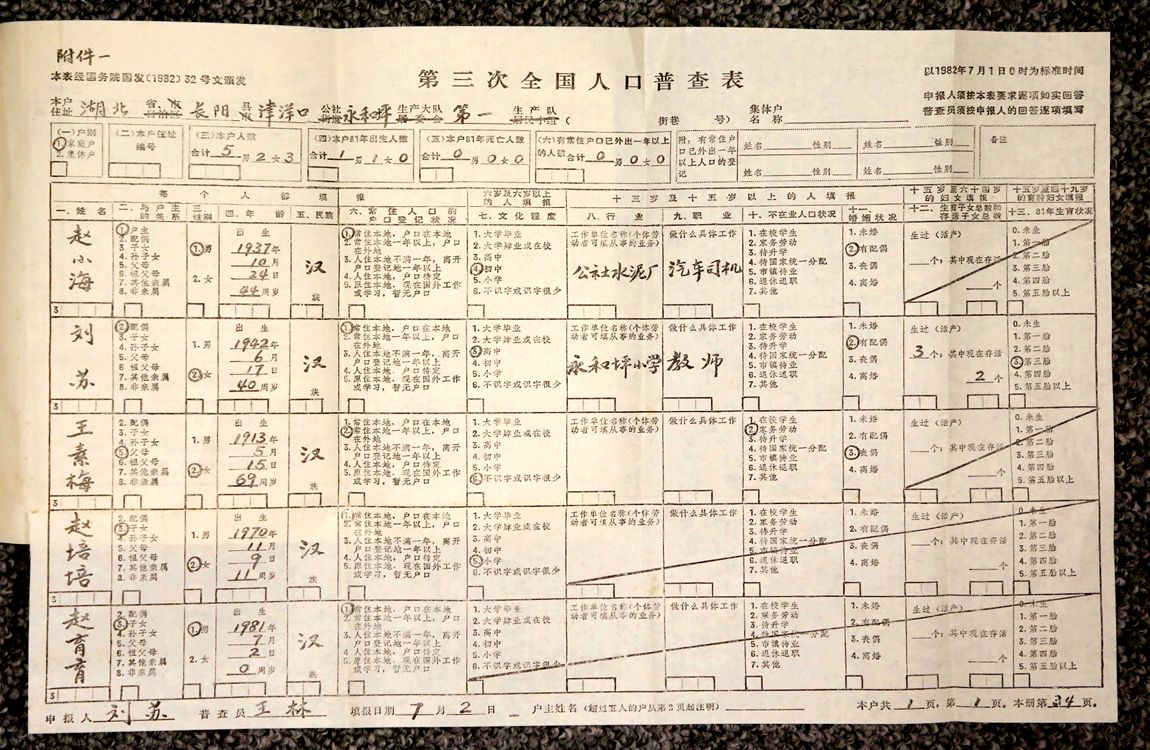 附件一
本表经国务院国发(1982)32号文颁发
第三次全国人口普查表
以1982年7月1日0时为标准时间
申报人须按本表要求逐项如实回答
普查员须按申报人的回答逐项填写
本户住址 湖北 省、市 自治区 长阳 县 市 津洋口 公社 街道 永和坪 生产大队 居委会 第一 生产队 居民小组 ( 街巷 号) 集体户名称
(一)户别 1.家庭户 2.集体户
(二)本户住址编号
(三)本户人数 合计 5 男 2 女 3
(四)本户81年出生人数 合计 1 男 1 女 0
(五)本户81年死亡人数 合计 0 男 0 女 0
(六)有常住户口已外出一年以上的人数 合计 0 男 0 女 0
附:有常住户口已外出一年以上人口的登记
姓名 性别 姓名 性别
姓名 性别 姓名 性别
备注
每个人都填报
六岁及六岁以上的人填报
十五岁及十五岁以上的人填报
十五岁至六十四岁的妇女填报
十五岁至四十九岁的育龄妇女填报
一.姓名
二.与户主的关系
三.性别
四.年龄
五.民族
六.常住人口的户口登记状况
七.文化程度
八.行业
九.职业
十.不在业人口状况
十一.婚姻状况
十二.生育子女总数和存活子女总数
十三.81年生育状况
赵小海
1.户主
2.配偶
3.子女
4.孙子女
5.父母
6.祖父母
7.其他亲属
8.非亲属
1.男
2.女
出生
1937年
10月
24日
44周岁
汉族
1.常住本地,户口在本地
2.常住本地一年以上,户口在外地
3.人住本地不满一年,离开户口登记地一年以上
4.人住本地,户口待定
5.原住本地,现在国外工作或学习,暂无户口
1.大学毕业
2.大学肄业或在校
3.高中
4.初中
5.小学
6.不识字或识字很少
工作单位名称(个体劳动者可填从事的业务)
公社水泥厂
做什么具体工作
汽车司机
1.在校学生
2.家务劳动
3.待升学
4.待国家统一分配
5.市镇待业
6.退休退职
7.其他
1.未婚
2.有配偶
3.丧偶
4.离婚
生过(活产)
个;其中现在存活
个
0.未生
1.第一胎
2.第二胎
3.第三胎
4.第四胎
5.第五胎以上
3
刘苏
2.配偶
3.子女
4.孙子女
5.父母
6.祖父母
7.其他亲属
8.非亲属
1.男
2.女
出生
1942年
6月
17日
40周岁
汉族
1.常住本地,户口在本地
2.常住本地一年以上,户口在外地
3.人住本地不满一年,离开户口登记地一年以上
4.人住本地,户口待定
5.原住本地,现在国外工作或学习,暂无户口
1.大学毕业
2.大学肄业或在校
3.高中
4.初中
5.小学
6.不识字或识字很少
工作单位名称(个体劳动者可填从事的业务)
永和坪小学
做什么具体工作
教师
1.在校学生
2.家务劳动
3.待升学
4.待国家统一分配
5.市镇待业
6.退休退职
7.其他
1.未婚
2.有配偶
3.丧偶
4.离婚
生过(活产)
3个;其中现在存活
2个
0.未生
1.第一胎
2.第二胎
3.第三胎
4.第四胎
5.第五胎以上
3
王素梅
2.配偶
3.子女
4.孙子女
5.父母
6.祖父母
7.其他亲属
8.非亲属
1.男
2.女
出生
1913年
5月
15日
69周岁
汉族
1.常住本地,户口在本地
2.常住本地一年以上,户口在外地
3.人住本地不满一年,离开户口登记地一年以上
4.人住本地,户口待定
5.原住本地,现在国外工作或学习,暂无户口
1.大学毕业
2.大学肄业或在校
3.高中
4.初中
5.小学
6.不识字或识字很少
工作单位名称(个体劳动者可填从事的业务)
做什么具体工作
1.在校学生
2.家务劳动
3.待升学
4.待国家统一分配
5.市镇待业
6.退休退职
7.其他
1.未婚
2.有配偶
3.丧偶
4.离婚
生过(活产)
个;其中现在存活
个
0.未生
1.第一胎
2.第二胎
3.第三胎
4.第四胎
5.第五胎以上
3
赵培培
2.配偶
3.子女
4.孙子女
5.父母
6.祖父母
7.其他亲属
8.非亲属
1.男
2.女
出生
1970年
11月
9日
11周岁
汉族
1.常住本地,户口在本地
2.常住本地一年以上,户口在外地
3.人住本地不满一年,离开户口登记地一年以上
4.人住本地,户口待定
5.原住本地,现在国外工作或学习,暂无户口
1.大学毕业
2.大学肄业或在校
3.高中
4.初中
5.小学
6.不识字或识字很少
工作单位名称(个体劳动者可填从事的业务)
做什么具体工作
1.在校学生
2.家务劳动
3.待升学
4.待国家统一分配
5.市镇待业
6.退休退职
7.其他
1.未婚
2.有配偶
3.丧偶
4.离婚
生过(活产)
个;其中现在存活
个
0.未生
1.第一胎
2.第二胎
3.第三胎
4.第四胎
5.第五胎以上
3
赵育育
2.配偶
3.子女
4.孙子女
5.父母
6.祖父母
7.其他亲属
8.非亲属
1.男
2.女
出生
1981年
7月
2日
0周岁
汉族
1.常住本地,户口在本地
2.常住本地一年以上,户口在外地
3.人住本地不满一年,离开户口登记地一年以上
4.人住本地,户口待定
5.原住本地,现在国外工作或学习,暂无户口
1.大学毕业
2.大学肄业或在校
3.高中
4.初中
5.小学
6.不识字或识字很少
工作单位名称(个体劳动者可填从事的业务)
做什么具体工作
1.在校学生
2.家务劳动
3.待升学
4.待国家统一分配
5.市镇待业
6.退休退职
7.其他
1.未婚
2.有配偶
3.丧偶
4.离婚
生过(活产)
个;其中现在存活
个
0.未生
1.第一胎
2.第二胎
3.第三胎
4.第四胎
5.第五胎以上
3
申报人 刘苏 普查员 王林 填报日期 7月2日 户主姓名(超过五人的户从第2页起注明) 本户共1页,第1页。本册第34页。